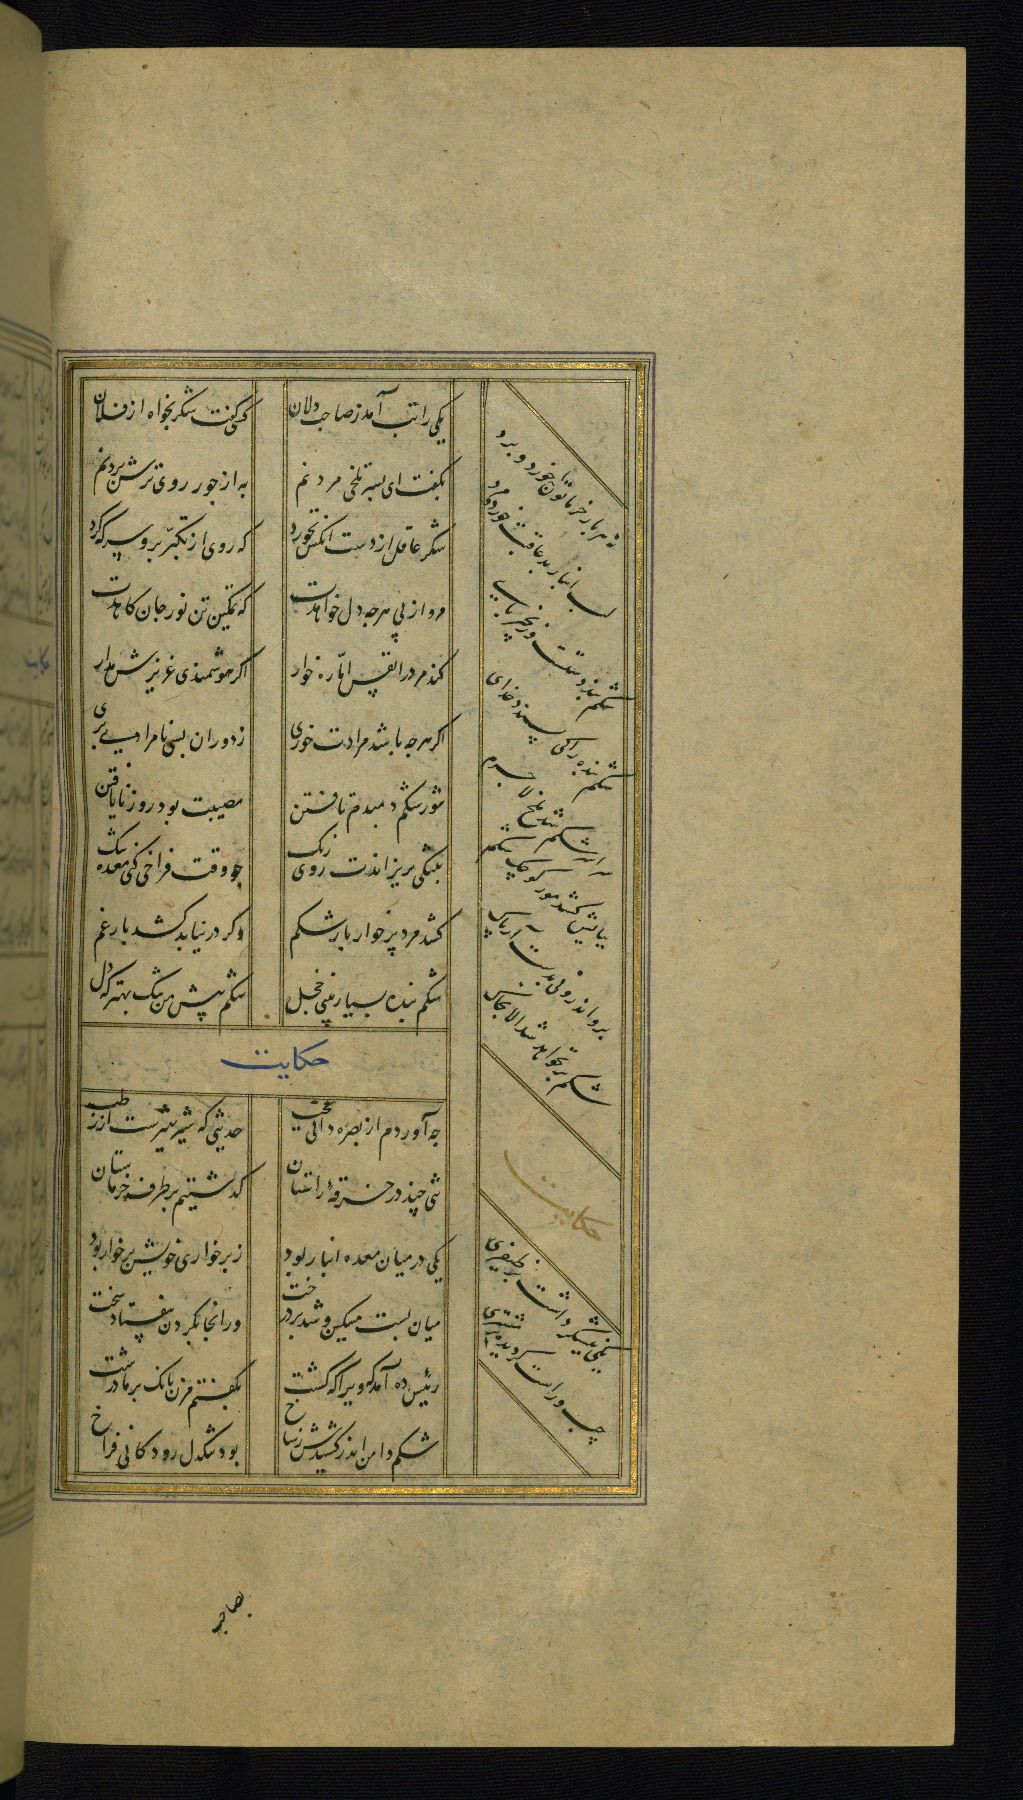 یکی را تب آمد ز صاحب دلان
کسی گفت شکر بخواه از فلان
بگفت ای پسر تلخی مردنم
به از جور روی ترش بردنم
شکر عاقل از دست آنکس نخورد
که روی از تکبر برو سرکه کرد
مرو از پی هرچه دل خواهدت
که تمکین تن نور جان کاهدت
کند مرد را نفس اماره خوار
اگر هوشمندی عزیزش مدار
اگر هرچه باشد مرادت خوری
ز دوران بسی نامرادی بری
تنور شکم دمبدم تافتن
مصیبت بود روز نایافتن
بتنگی بریزاندت روی رنگ
چو وقت فراخی کنی معده تنگ
کشد مرد پرخوار بار شکم
وگر درنیابد کشد بار غم
شکم بنده بسیار بینی خجل
شکم پیش من تنگ بهتر که دل
حکایت
چه آوردم از بصره دانی عجب
حدیثی که شیرین ترست از رطب
تنی چند در خرقه راستان
گذشتیم بر طرف خرماستان
یکی در میان معده انبار بود
ز پرخواری خویش پرخوار بود
میان بست مسکین و شد بر درخت
وزانجا بگردن بیفتاد سخت
رئیس ده آمد که ویرا که کشت
بگفتم مزن بانک بر ما درشت
شکم دامن اندر کشیدش ز شاخ
بود تنگدل رودکانی فراخ
نه هر بار خرما توان خورد و برد
لت انبار بد عاقبت خورد و مرد
شکم بند دستست و زنجیر پای
شکم بنده را کی پسندد خدای
سراسر شکم شد ملخ لاجرم
بپایش کشد مور کوچک شکم
برو اندرونی بدست آر پاک
شکم پر نخواهد شد الا بخاک
حکایت
یکی نیشکر داشت بر طیفری
چپ و راست گردیده بر مشتری